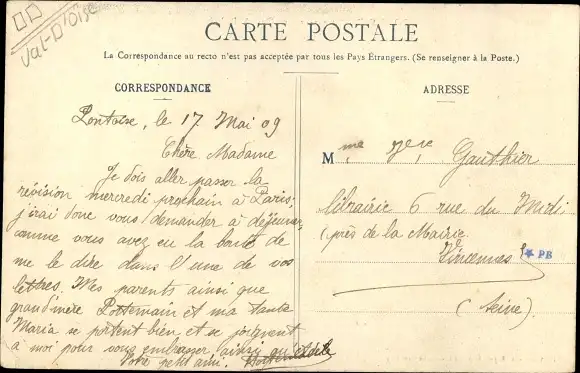 Val-D'Oise
CARTE POSTALE
La Correspondance au recto n'est pas acceptée par tous les Pays Étrangers. (Se renseigner à la Poste.)
CORRESPONDANCE
Pontoise, le 17 Mai 09
Chère Madame
Je dois aller passer la
révision mercredi prochain à Paris;
j'irai donc vous demander à déjeuner,
comme vous avez eu la bonté de
me le dire dans l'une de vos
lettres. Mes parents ainsi que
grand'mère Pottemain et ma tante
Maria se portent bien et se joignent
à moi pour vous embrasser ainsi qu'
Votre petit ami.
ADRESSE
Mme Vve Gauthier
librairie 6 rue du Midi
(près de la Mairie
Vincennes
* PB
(Seine)